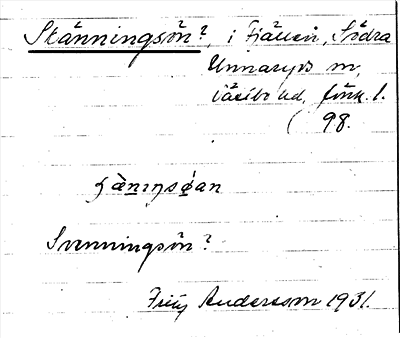 Skänningsön?, i Fjällen, Södra
Unnaryds sn,
Västbo hd, Jönk. l.
( 98.
Svenningsön?
Fritz Andersson 1931.